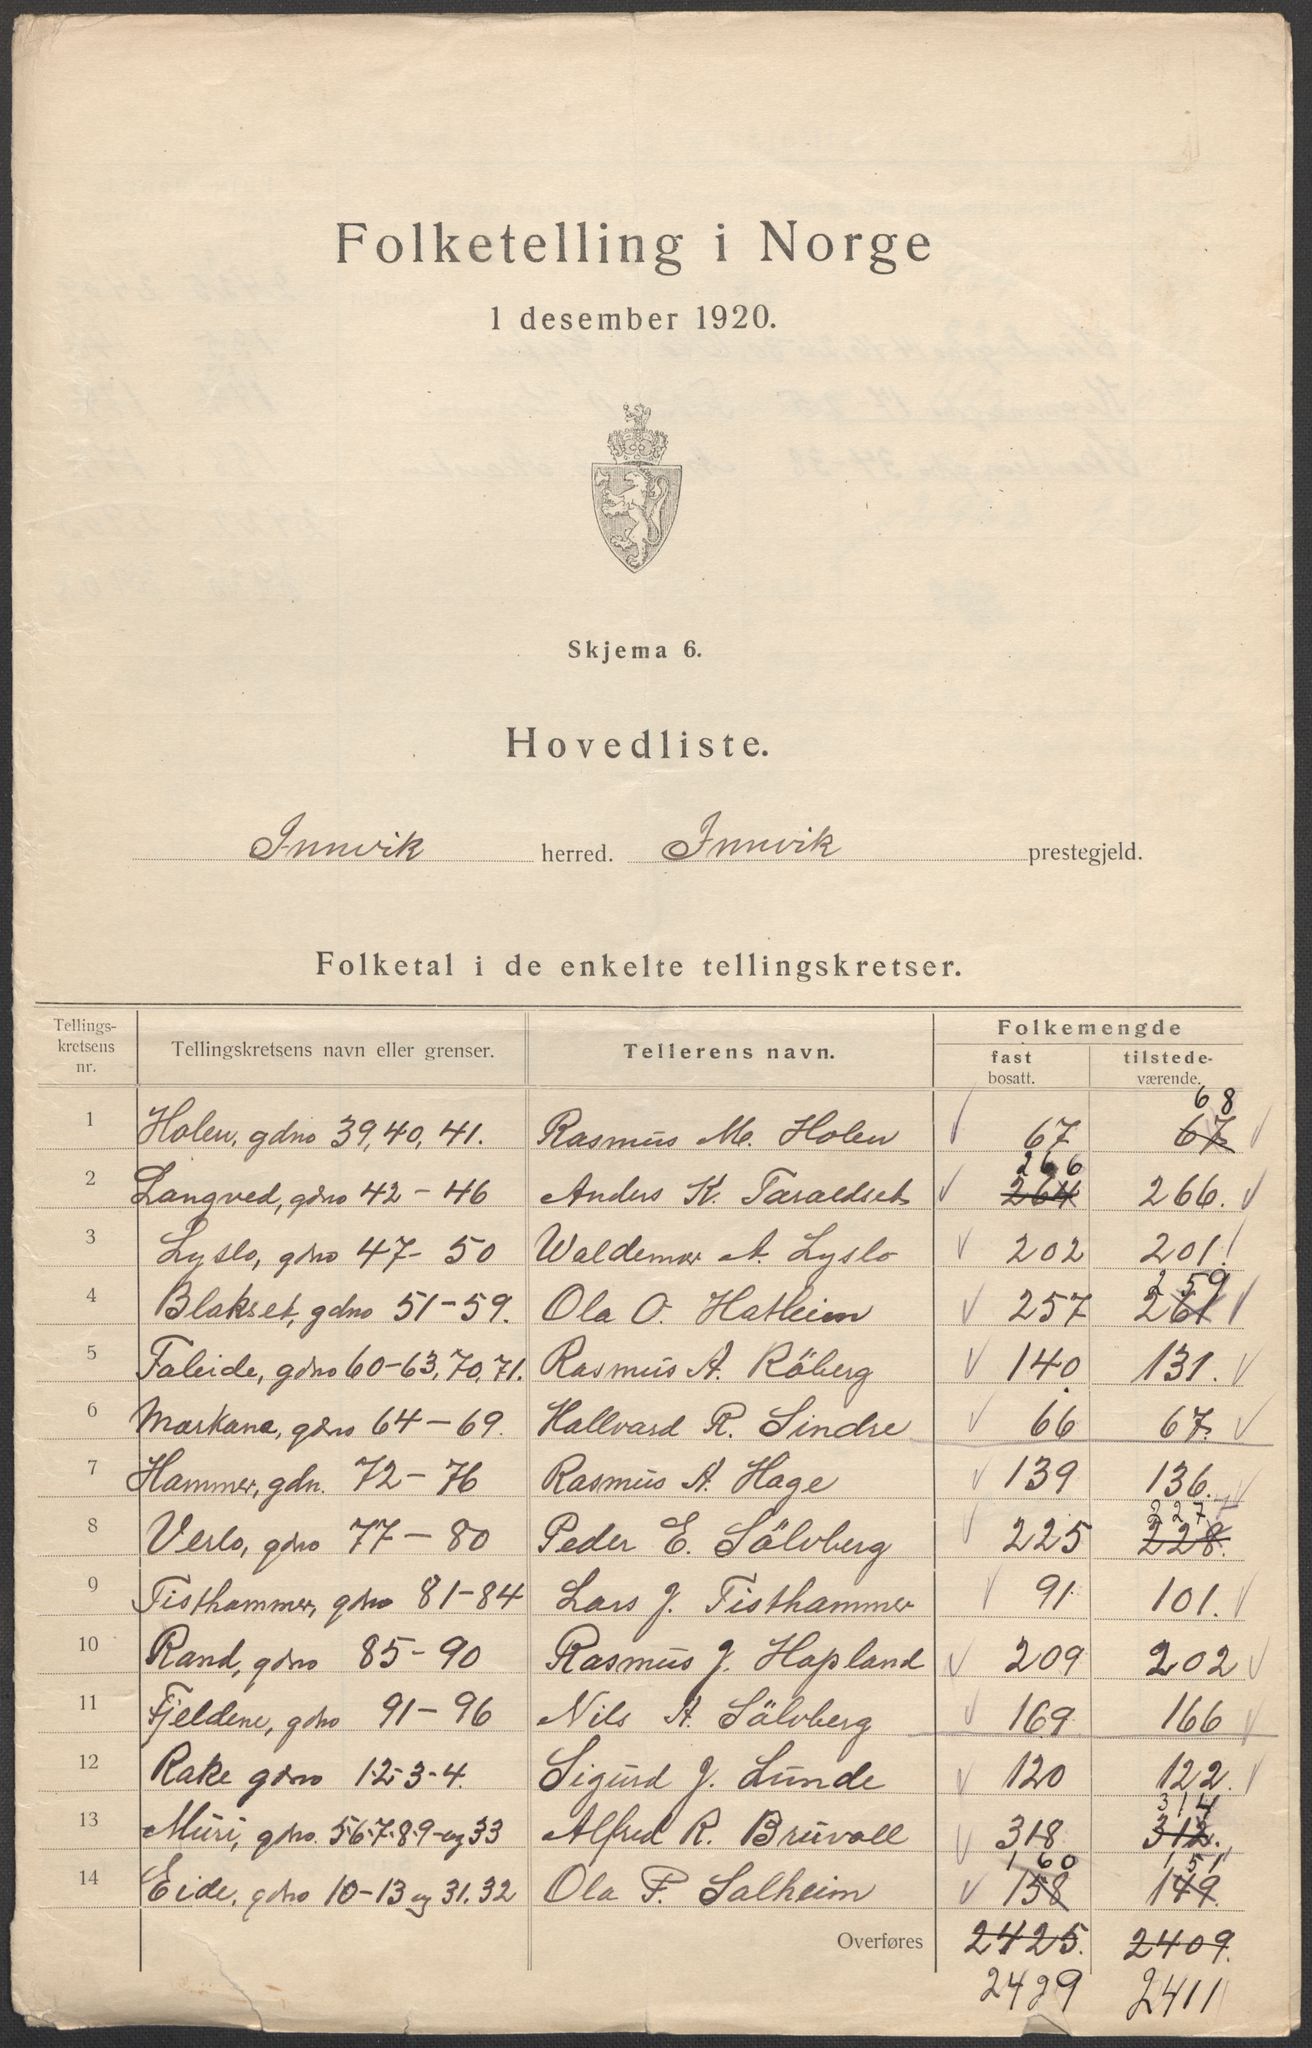 Folketelling i Norge
1 desember 1920.
Skjema 6.
Hovedliste.
Innvik herred. Innvik prestegjeld.
Folketal i de enkelte tellingskretser.
Tellings-kretsens nr. Tellingskretsens navn eller grenser. Tellerens navn. Folkemengde fast bosatt. tilstede-værende.
68
1 Holen, gdno 39, 40, 41. Rasmus M. Holen 67 67
266
2 Langved, gdno 42-46 Anders K. Taraldset 264 266.
3 Lyslo, gdno 47-50 Waldemar A. Lyslo 202 201
259
4 Blakset, gdno 51-59. Ola O. Hatleim 257 261
5 Faleide, gdno 60-63, 70, 71. Rasmus A. Röberg 140 131.
6 Markane, gdno 64-69. Hallvard R. Sindre 66 67.
7 Hammer, gdn. 72-76 Rasmus A. Hage 139 136.
227
8 Verlo, gdno 77-80 Peder E. Sölvberg 225 228.
9 Tisthammer, gdno 81-84 Lars J. Tisthammer 91 101.
10 Rand, gdno 85-90 Rasmus J. Hapland 209 202
11 Fjeldene, gdno 91-96 Nils A. Sölvberg 169 166
12 Rake gdno 1-2-3-4. Sigurd J. Lunde 120 122.
314
13 Muri, gdno. 5-6-7-8-9- og 33 Alfred R. Bruvoll 318 312.
160 151
14 Eide, gdno 10-13 og 31. 32 Ola P. Salheim 158 149.
Overføres 2425. 2409.
2429 2411